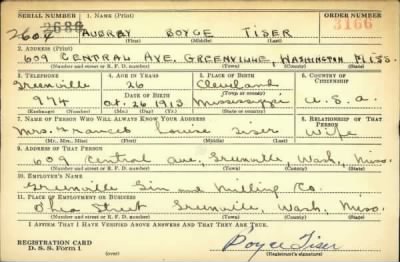 SERIAL NUMBER 1. NAME (Print) ORDER NUMBER
2604 2680 AUBREY BOYCE TISER 3166
(First) (Middle) (Last)
2. ADDRESS (Print)
609 CENTRAL AVE. GREENVILLE, WASHINGTON MISS.
(Number and street or R. F. D. number) (Town) (County) (State)
3. TELEPHONE 4. AGE IN YEARS 5. PLACE OF BIRTH 6. COUNTRY OF CITIZENSHIP
Greenville 26 Cleveland
DATE OF BIRTH (Town or county)
974 Oct. 26 1913 Mississippi U. S. A.
(Exchange) (Number) (Mo.) (Day) (Yr.) (State or country)
7. NAME OF PERSON WHO WILL ALWAYS KNOW YOUR ADDRESS 8. RELATIONSHIP OF THAT PERSON
Mrs. Frances Louise Tiser Wife
(Mr., Mrs., Miss) (First) (Middle) (Last)
9. ADDRESS OF THAT PERSON
609 Central Ave, Greenville, Wash, Miss.
(Number and street or R. F. D. number) (Town) (County) (State)
10. EMPLOYER'S NAME
Greenville Gin and Milling Co.
11. PLACE OF EMPLOYMENT OR BUSINESS
Ohio Street Greenville, Wash, Miss.
(Number and street or R. F. D. number) (Town) (County) (State)
I AFFIRM THAT I HAVE VERIFIED ABOVE ANSWERS AND THAT THEY ARE TRUE.
REGISTRATION CARD
D. S. S. Form 1 Boyce Tiser
(Registrant's signature)